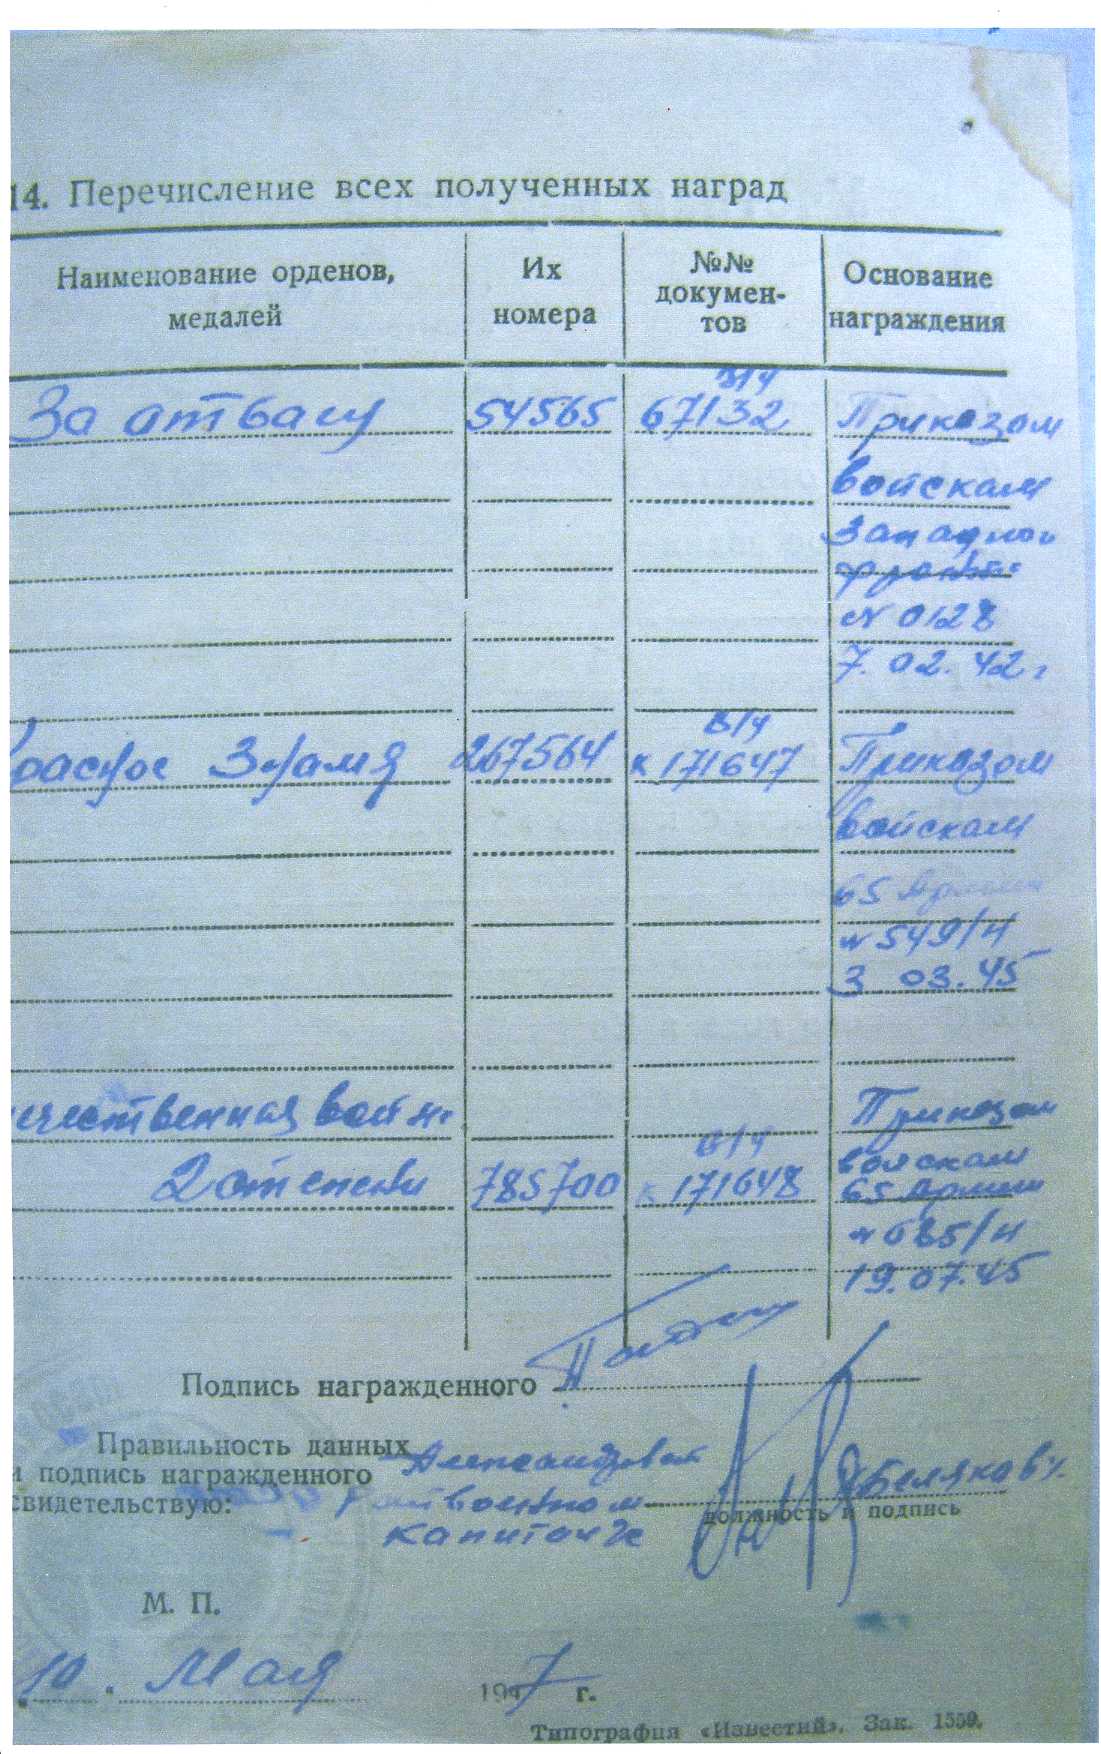 14. Перечисление всех полученных наград
Наименование орденов, медалей
Их номера
№№ докумен-тов
Основание награждения
За отвагу 54565 в/ч 67132 Приказом
войскам
Западного
фронта
N 0128
7.02.42 г
Красное Знамя 267564 в/ч к 171647 Приказом
войскам
65 Армии
N 549/н
3 03.45
ечественная войн
2 степени 785700 в/ч к 171648 Приказом
войскам
65 Армии
N 685/н
19.07.45
Подпись награжденного
Правильность данных
и подпись награженного
свидетельствую:
Александровский
райвоенком
капитан
Беляков
должность и подпись
М. П.
"10" Мая 1947 г.
Типография «Известий». Зак. 1559.